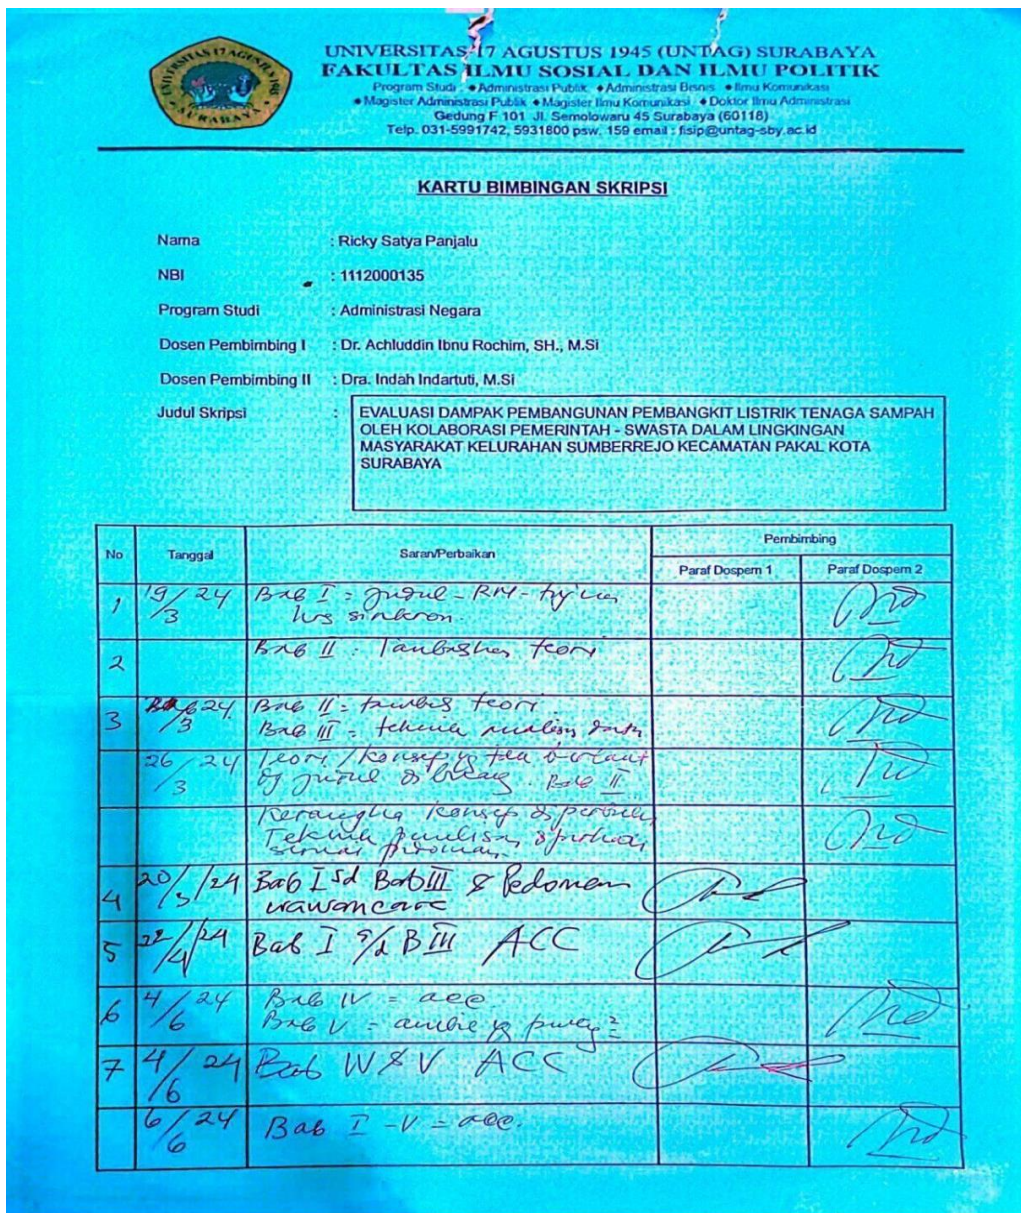 UNIVERSITAS 17 AGUSTUS 1945 (UNTAG) SURABAYA
FAKULTAS ILMU SOSIAL DAN ILMU POLITIK
Program Studi : ♦Administrasi Publik ♦Administrasi Bisnis ♦Ilmu Komunikasi
♦Magister Administrasi Publik ♦Magister Ilmu Komunikasi ♦Doktor Ilmu Administrasi
Gedung F 101 Jl. Semolowaru 45 Surabaya (60118)
Telp. 031-5991742, 5931800 psw. 159 email : fisip@untag-sby.ac.id
KARTU BIMBINGAN SKRIPSI
Nama : Ricky Satya Panjalu
NBI : 1112000135
Program Studi : Administrasi Negara
Dosen Pembimbing I : Dr. Achluddin Ibnu Rochim, SH., M.Si
Dosen Pembimbing II : Dra. Indah Indartuti, M.Si
Judul Skripsi : EVALUASI DAMPAK PEMBANGUNAN PEMBANGKIT LISTRIK TENAGA SAMPAH
OLEH KOLABORASI PEMERINTAH - SWASTA DALAM LINGKINGAN
MASYARAKAT KELURAHAN SUMBERREJO KECAMATAN PAKAL KOTA
SURABAYA
No Tanggal Saran/Perbaikan Pembimbing
Paraf Dospem 1 Paraf Dospem 2
1 19/3 24 Bab I = judul - RM - tujuan
hrs sinkron.
2 Bab II : Tambahkan teori
3 24/3 Bab II = teori
Bab III = teknik analisis data
26/3 24 Teori / konsep yg
judul Bab II
Kerangka konsep
Teknik
4 20/3/24 Bab I sd Bab III & Pedoman
wawancara
5 22/4/24 Bab I s/d B III ACC
6 4/6 24 Bab IV = acc
Bab V =
7 4/6 24 Bab IV & V ACC
6/6 24 Bab I - V = acc.